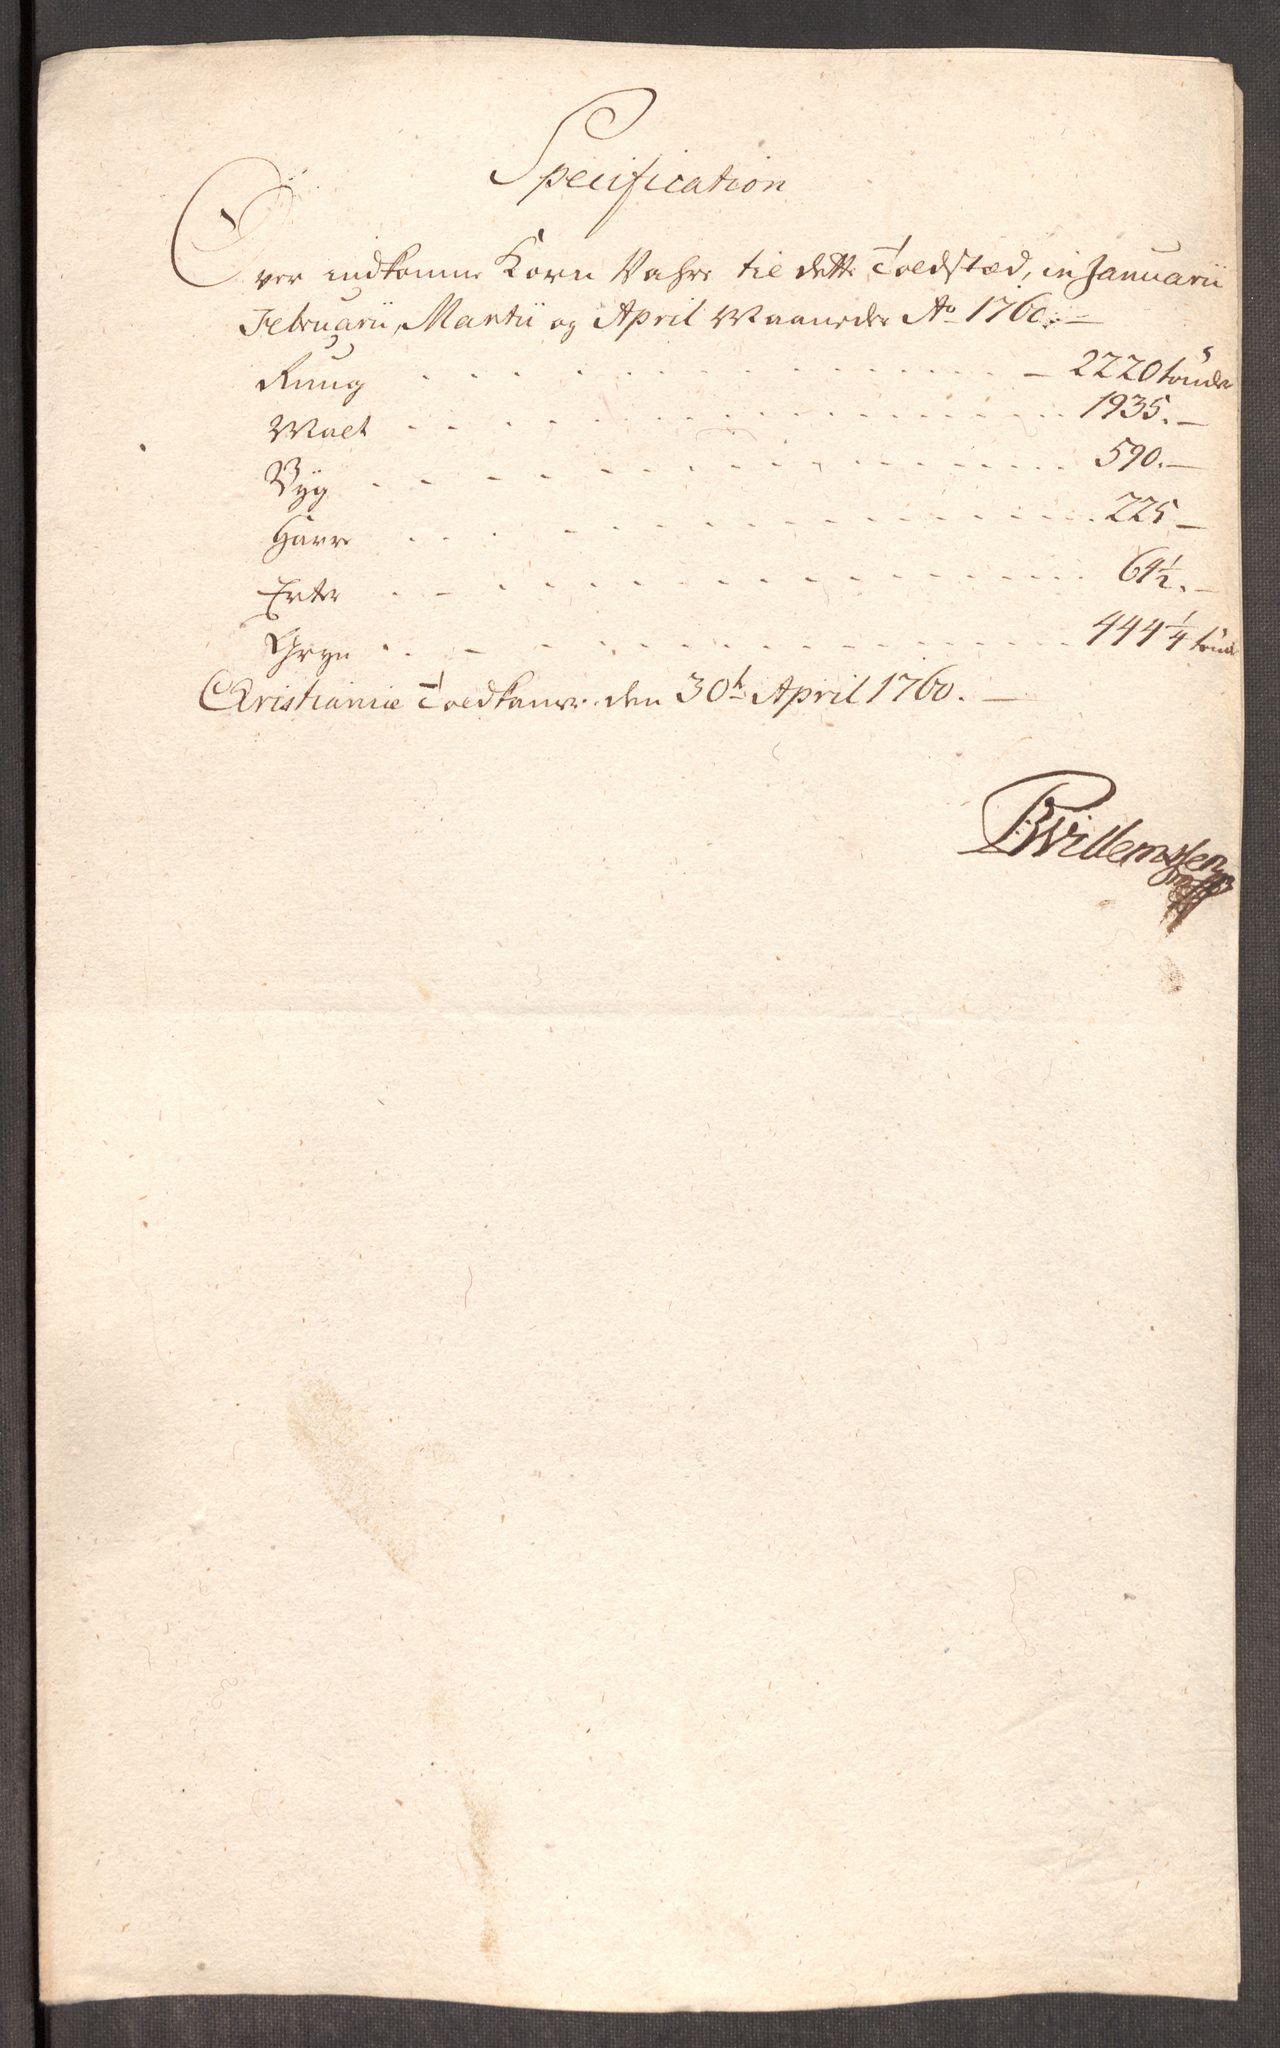 Specification
Over indkomne Korn Vahre til dette Toldstæd, in Januarii
Februarii, Martii og April Maaneder Ao 1760. —
Ruug . . . . . . — 2220 tönder
Malt . . . . . . 1935. —
Byg . . . . . . 590. —
Havre . . . . . . 225 —
Erter . . . . . . 61½. —
Gryn . . . . . . 444¼ tönde
Christianiæ Toldkamer den 30te April 1760. —
BWillemsen